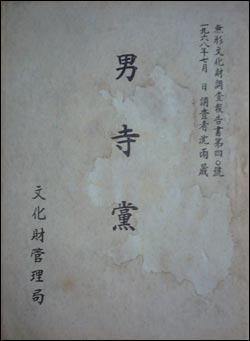 無形文化財調査報告書第四〇號
一九六八年七月 日 調査者 沈雨晟
男寺黨
文化財管理局